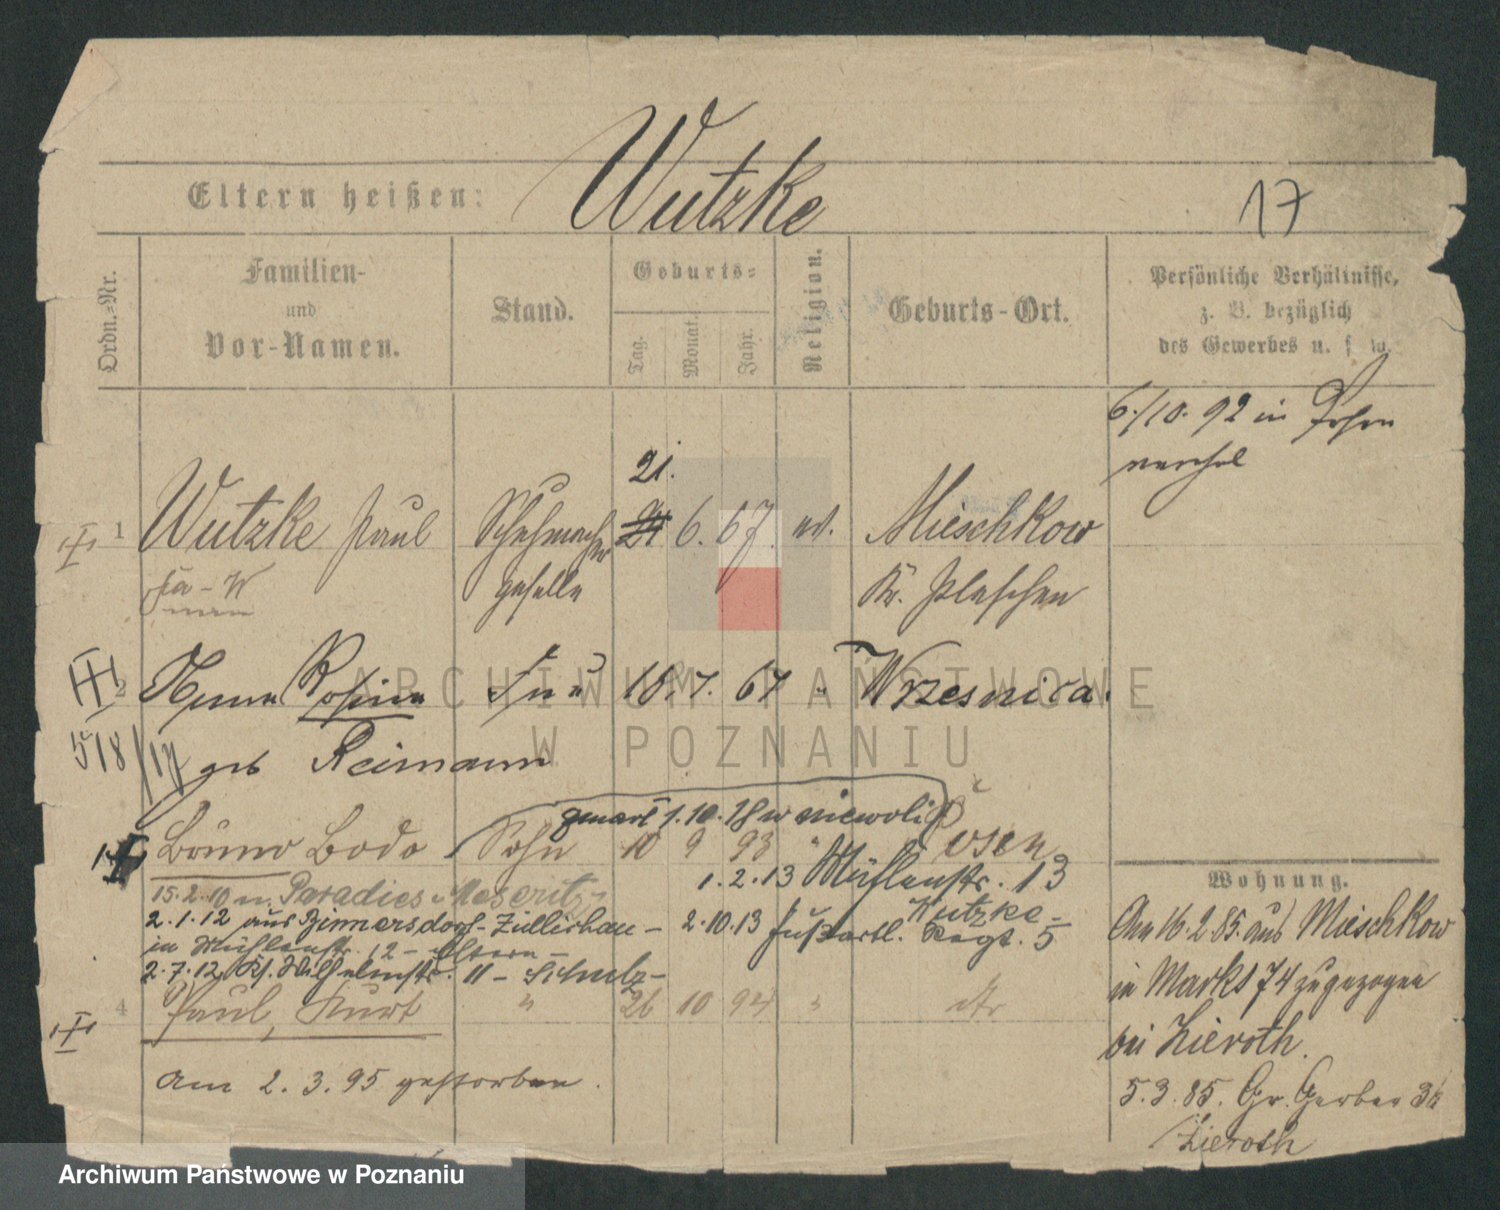 Eltern heißen: Wutzke
17
Ordn.-Nr.
Familien- und Vor-Namen.
Stand.
Geburts-
Tag.
Monat.
Jahr.
Religion.
Geburts-Ort.
Persönliche Verhältnisse, z. B. bezüglich des Gewerbes u. s. w.
6./10. 92 in Posen
21.
1 Wutzke Paul Schuhmacher 21 6. 67. ev. Mieschkow
geselle Kr. Pleschen
2 Anna Rosina Frau 18. 7. 67 " Wrzesnica.
518/17 geb Reimann
zmarł 1.10.18 w niewoli
Bruno Bodo Sohn 10 9 93 " Posen
1.2.13 Mühlenstr. 13
15.2.10 n. Paradies-Meseritz
Wutzke-
2.1.12 aus Zimmersdorf-Züllichau- 2.10.13 Fußartl. Regt. 5
in Mühlenstr. 12 - Eltern-
2.7.12 Ks. Wilhelmstr. 11 - Schulz-
4 Paul, Kurt " 26 10 94 " dto
am 2. 3. 95 gestorben.
Wohnung.
Am 16.2.85. aus Mieschkow
in Markt 74 zugezogen
bei Zieroth.
5.3.85. Gr. Gerber 36
Zieroth
ARCHIWUM PAŃSTWOWE
W POZNANIU
Archiwum Państwowe w Poznaniu